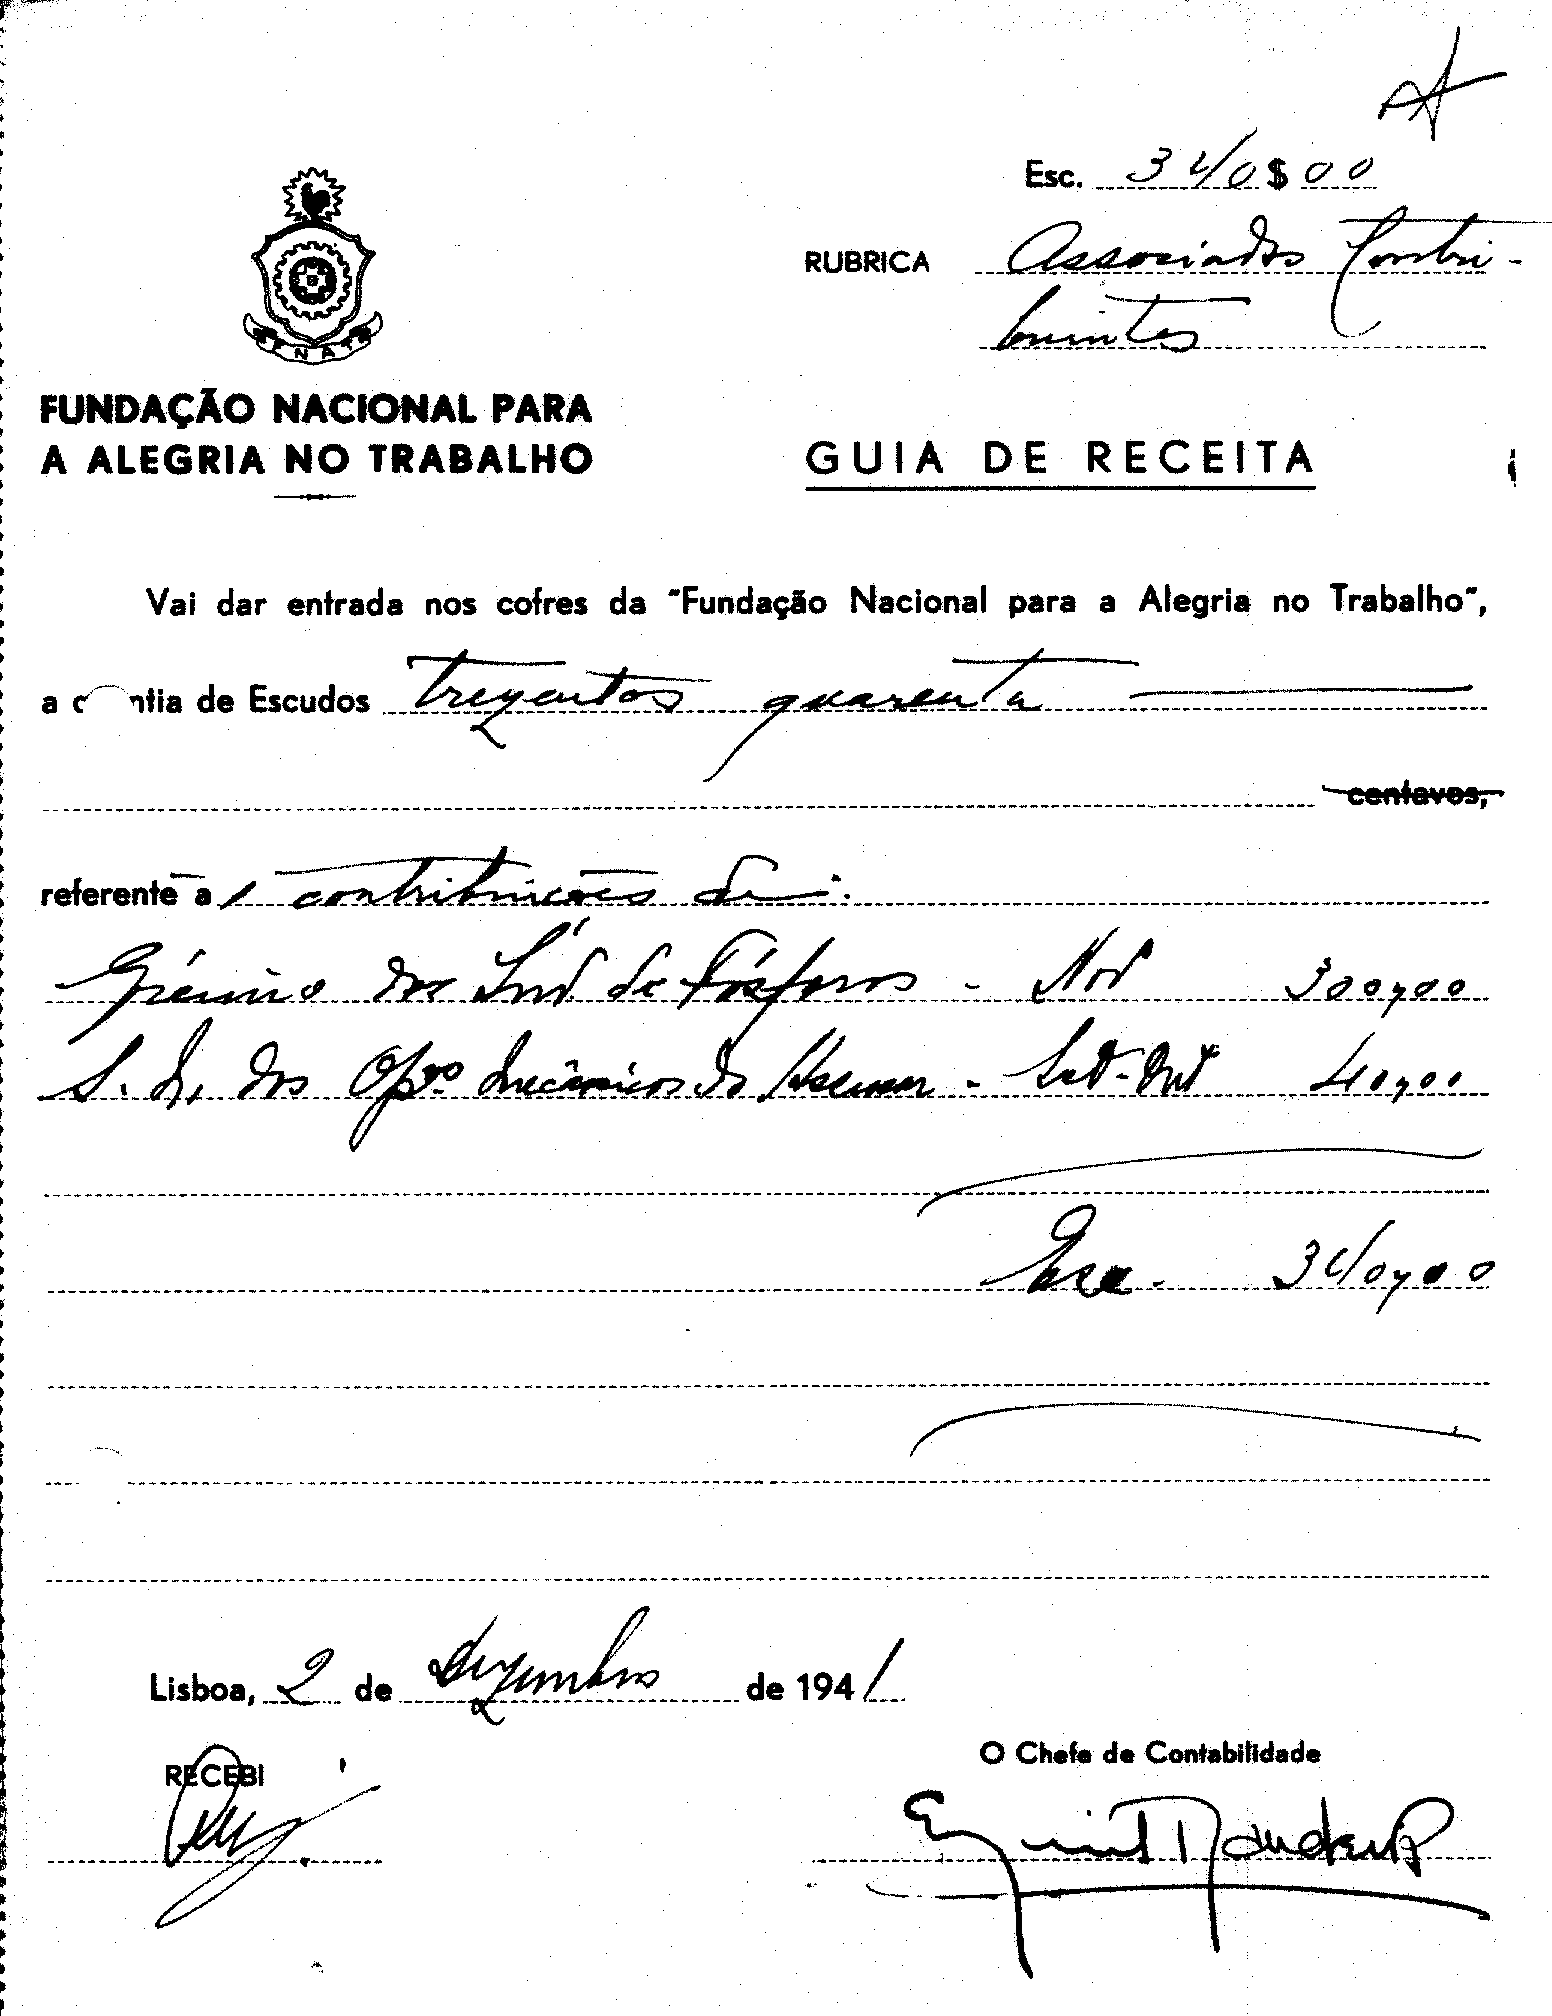 Esc. 340$00
RUBRICA Associados Contri-
buintes
FENAT
FUNDAÇÃO NACIONAL PARA
A ALEGRIA NO TRABALHO
GUIA DE RECEITA
Vai dar entrada nos cofres da "Fundação Nacional para a Alegria no Trabalho",
a ntia de Escudos trezentos quarenta
centavos,
referente a contribuições de:
Grémio dos Ind. de Fósforos - Nov 300,00
S. N. dos Opºs Mecânicos do - Set-Out 40,00
Esc. 340,00
Lisboa, 2 de Dezembro de 1941
RECEBI
O Chefe de Contabilidade